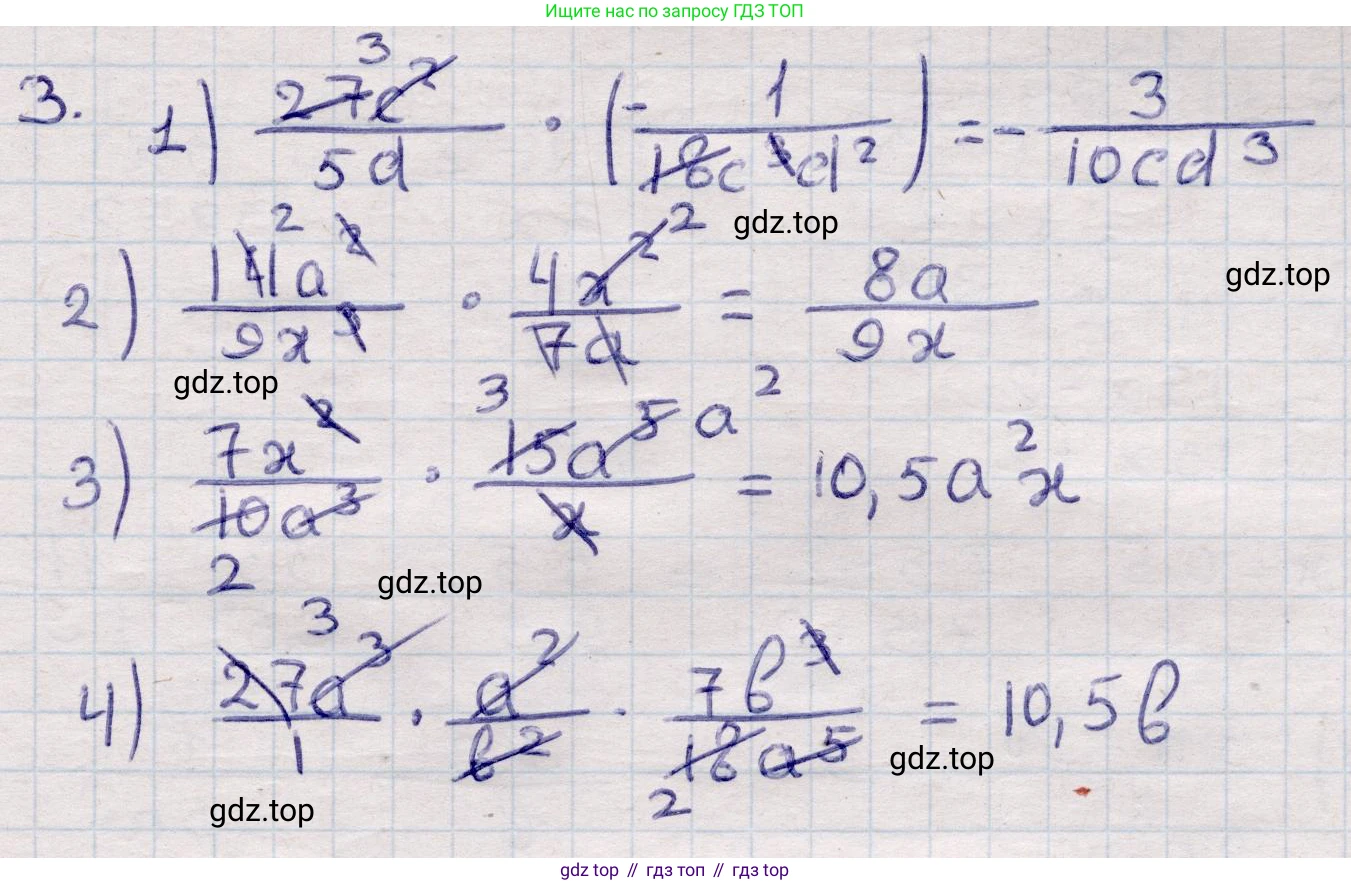 Ищите нас по запросу ГДЗ ТОП
3. 1) 27c²/5d · (-1/18c³d²) = -3/10cd³
3
gdz.top
gdz.top
2) 14a²/9x³ · 4x²/7a = 8a/9x
2 2
gdz.top
3) 7x²/10a³ · 15a⁵/x = 10,5a²x
3 a²
2
gdz.top
4) 27a³/1 · a²/b² · 7b³/18a⁵ = 10,5b
3
2
gdz.top
gdz.top
gdz top // гдз топ // гдз top